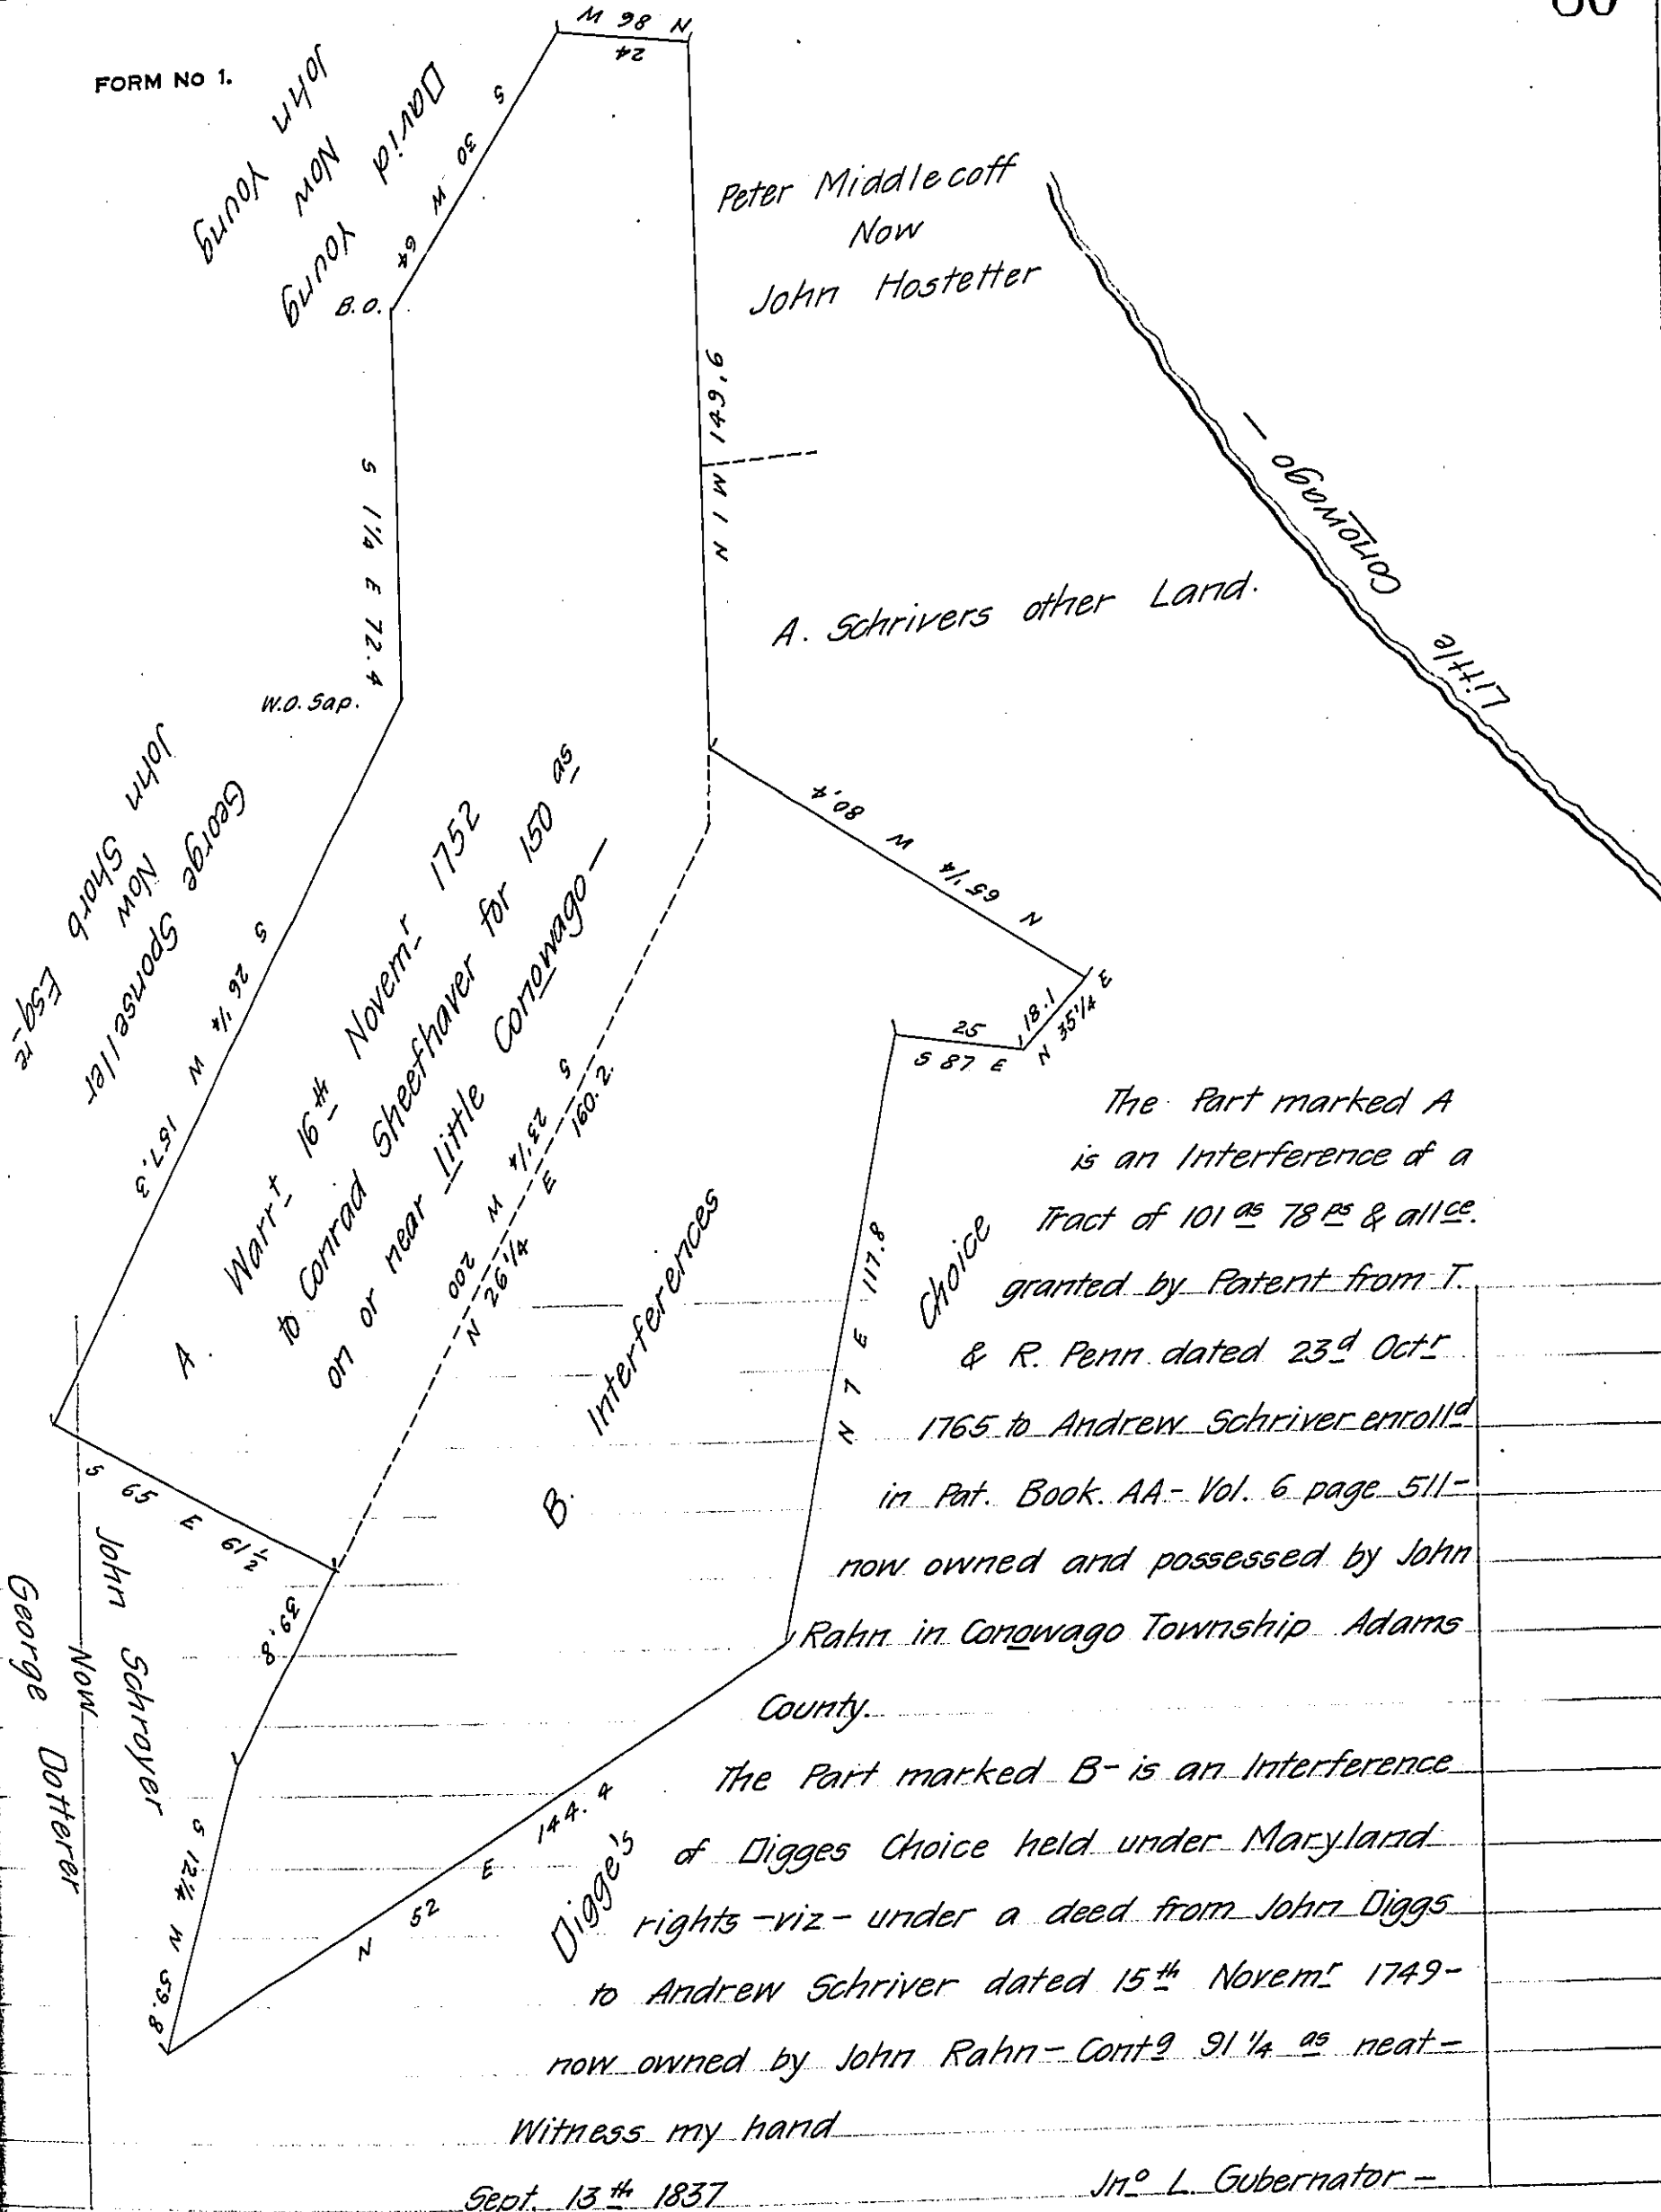 80
FORM NO 1.
N 86 W
24
S 30 W 64
David Young
Now
John Young
B.O.
Peter Middlecoff
Now
John Hostetter
N 1 W 149.6
S 1 1/4 E 72.4
W.O. Sap.
A. Schrivers other Land.
Little Conowago —
George Sponseller
Now
John Shorb Esq-re
S 26 1/4 W 157.3
N 65 1/4 W 80.4
N 35 1/4 E
18.1
25
S 87 E
A.
Warrt 16th Novemr 1752
to Conrad Sheefhaver for 150 as
on or near little Conowago—
S 23 1/4 W 200
N 26 1/4 E 160.2.
B.
Interferences
N 7 E 117.8
S 65 E 61 1/2
39.8
John Schroyer
Now
George Dotterer
S 12 1/4 W 59.8
N 52 E 144.4
Digge's Choice
The Part marked A
is an Interference of a
Tract of 101 as 78 ps & allce.
granted by Patent from T.
& R. Penn dated 23d Octr
1765 to Andrew Schriver enrolld
in Pat. Book. AA- Vol. 6 page 511-
now owned and possessed by John
Rahn in Conowago Township Adams
County.
The Part marked B- is an Interference
of Digges Choice held under Maryland
rights -viz- under a deed from John Diggs
to Andrew Schriver dated 15th Novemr 1749-
now owned by John Rahn- Contg 91 1/4 as neat-
Witness my hand
Sept. 13th 1837
Jno L. Gubernator-